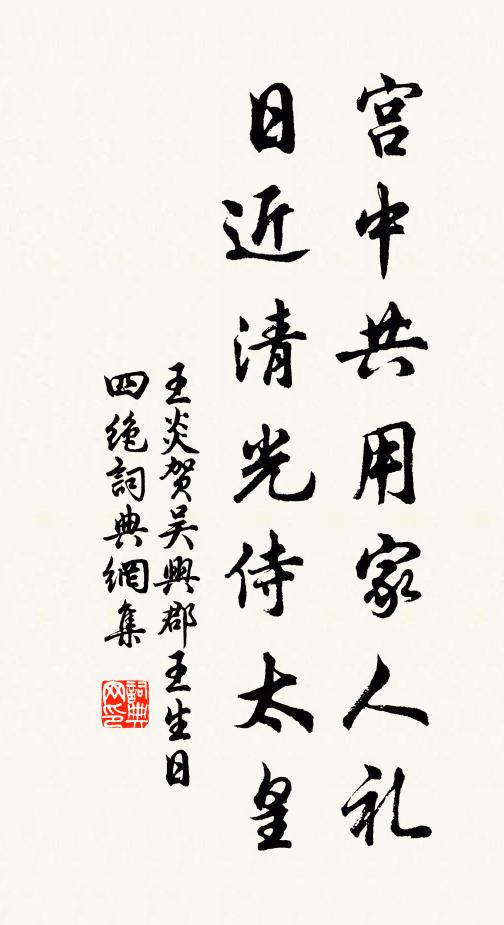 宫中共用家人礼
日近清光侍太皇
王炎贺吴興郡王生日
四绝詞典網集
詞典
网印